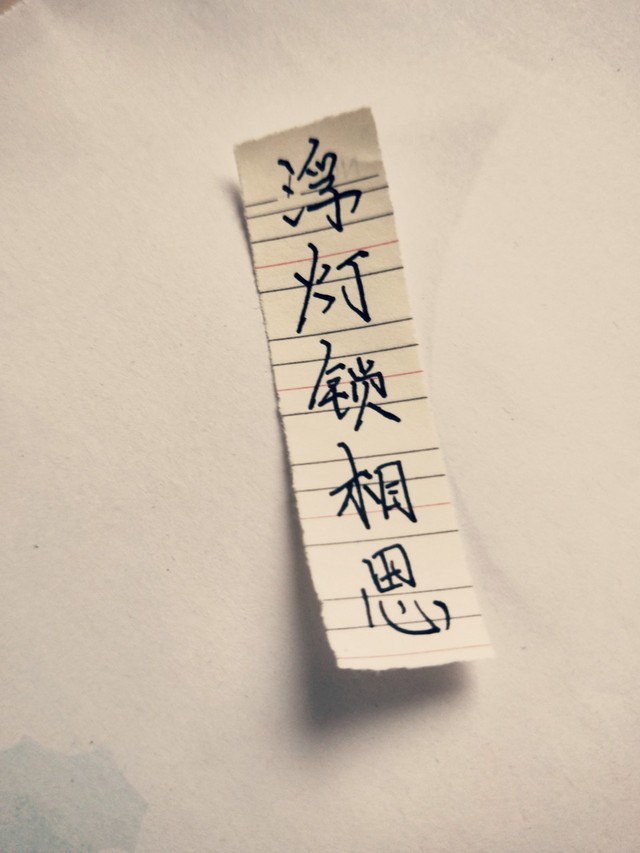 浮灯锁相思